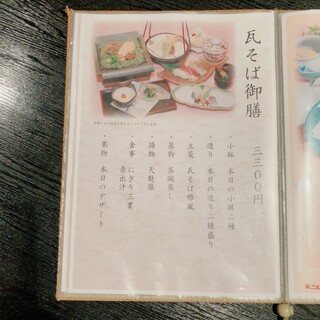 瓦そば御膳
三三〇〇円
・小鉢 本日の小鉢二種
・造り 本日の造り二種盛り
・主菜 瓦そば雅風
・蒸物 茶碗蒸し
・揚物 天麩羅
・食事 にぎり三貫
赤出汁
・果物 本日のデザート